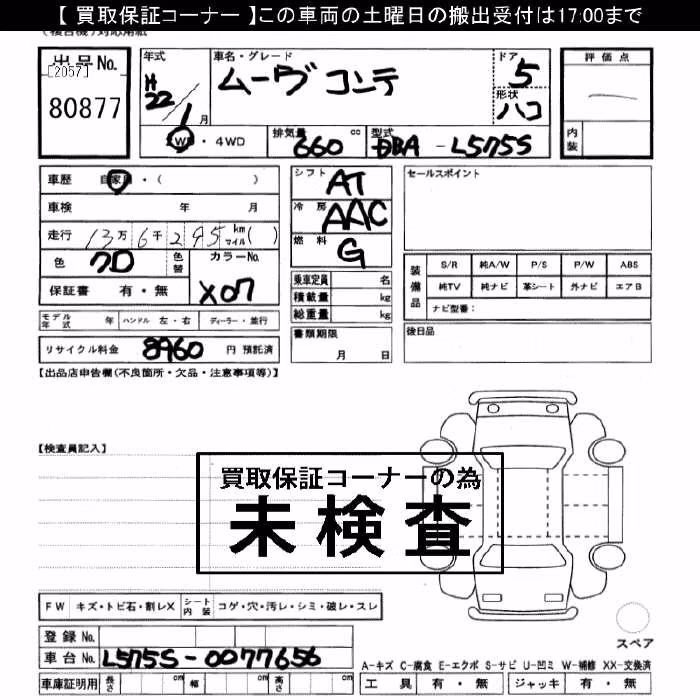 【 買取保証コーナー 】この車両の土曜日の搬出受付は17:00まで
出品No.
[2057]
80877
年式
H
22
1
月
車名・グレード
ムーヴ コンテ
ドア
5
形状
ハコ
評価点
内装
2WD・4WD
排気量
660
cc
型式
DBA - L575S
車歴 自家用・( )
車検 年 月
走行 13万 6千 295 km マイル ( )
色
クロ
色替
カラーNo.
X07
保証書 有・無
モデル年式 年 ハンドル 左・右 ディーラー・並行
リサイクル料金 8960 円 預託済
シフト
AT
冷房
AAC
燃料
G
乗車定員 名
積載量 kg
総重量 kg
書類期限
月 日
セールスポイント
装備品
S/R 純A/W P/S P/W ABS
純TV 純ナビ 革シート 外ナビ エアB
ナビ型番：
後日品
【出品店申告欄(不良箇所・欠品・注意事項等)】
【検査員記入】
買取保証コーナーの為
未検査
FW キズ・トビ石・割レX シート内装 コゲ・穴・汚レ・シミ・破レ・スレ
登録No.
車台No. L575S-0077656
車庫証明用 長さ cm 幅 cm 高さ cm
スペア
A-キズ C-腐食 E-エクボ S-サビ U-凹ミ W-補修 XX-交換済
工具 有・無 ジャッキ 有・無